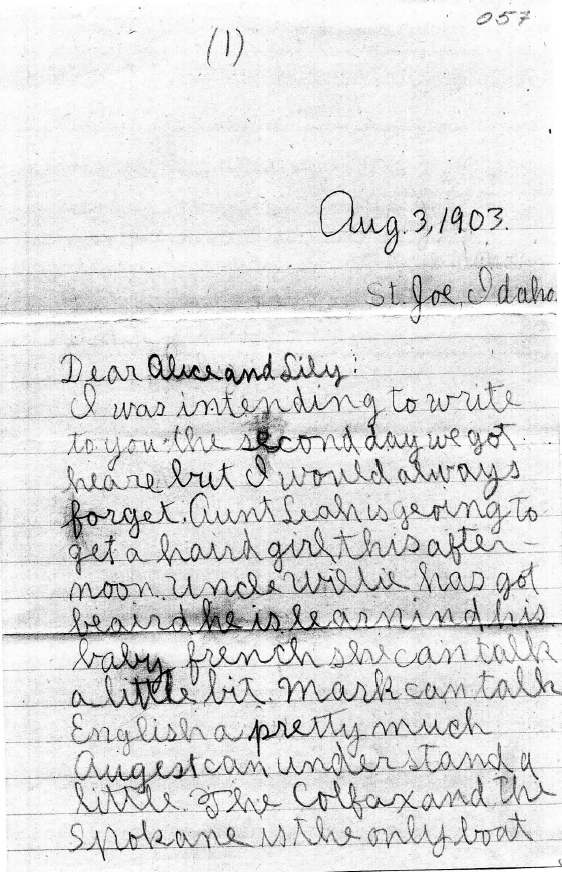 057
(1)
Aug. 3, 1903.
St. Joe, Idaho
Dear Alice and Lily:
I was intending to write
to you the second day we got
heare but I would always
forget. Aunt Leah is geoing to
get a haird girl this after-
noon. Uncle Willie has got
beaird he is learnind his
baby french she can talk
a little bit. Mark can talk
English a pretty much
Augest can understand a
little. The Colfax and the
Spokane is the only boat